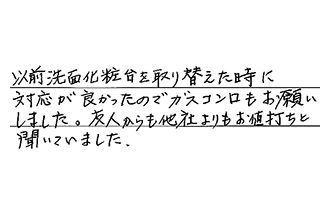 以前洗面化粧台を取り替えた時に
対応が良かったのでガスコンロもお願い
しました。友人からも他社よりもお値打ちと
聞いていました.